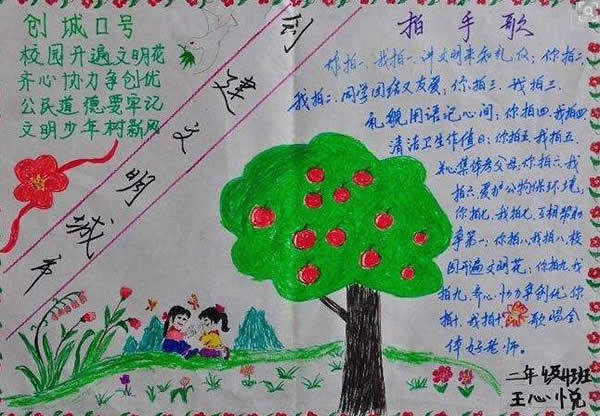 创城口号
校园开遍文明花
齐心协力争创优
公民道德要牢记
文明少年树新风
创建文明城市
拍手歌
你拍一、我拍一、讲文明来知礼仪；你拍二、
我拍二、同学团结又友爱；你拍三、我拍三、
礼貌用语记心间；你拍四、我拍四、
清洁卫生作值日；你拍五、我拍五、
关心集体孝父母；你拍六、我
拍六、爱护公物保环境，
你拍七、我拍七、互相帮助
争第一；你拍八、我拍八、校
园开遍文明花；你拍九、我
拍九、齐心协力争创优；你
拍十、我拍十、歌唱全
体好老师。
二年级4班
王心悦